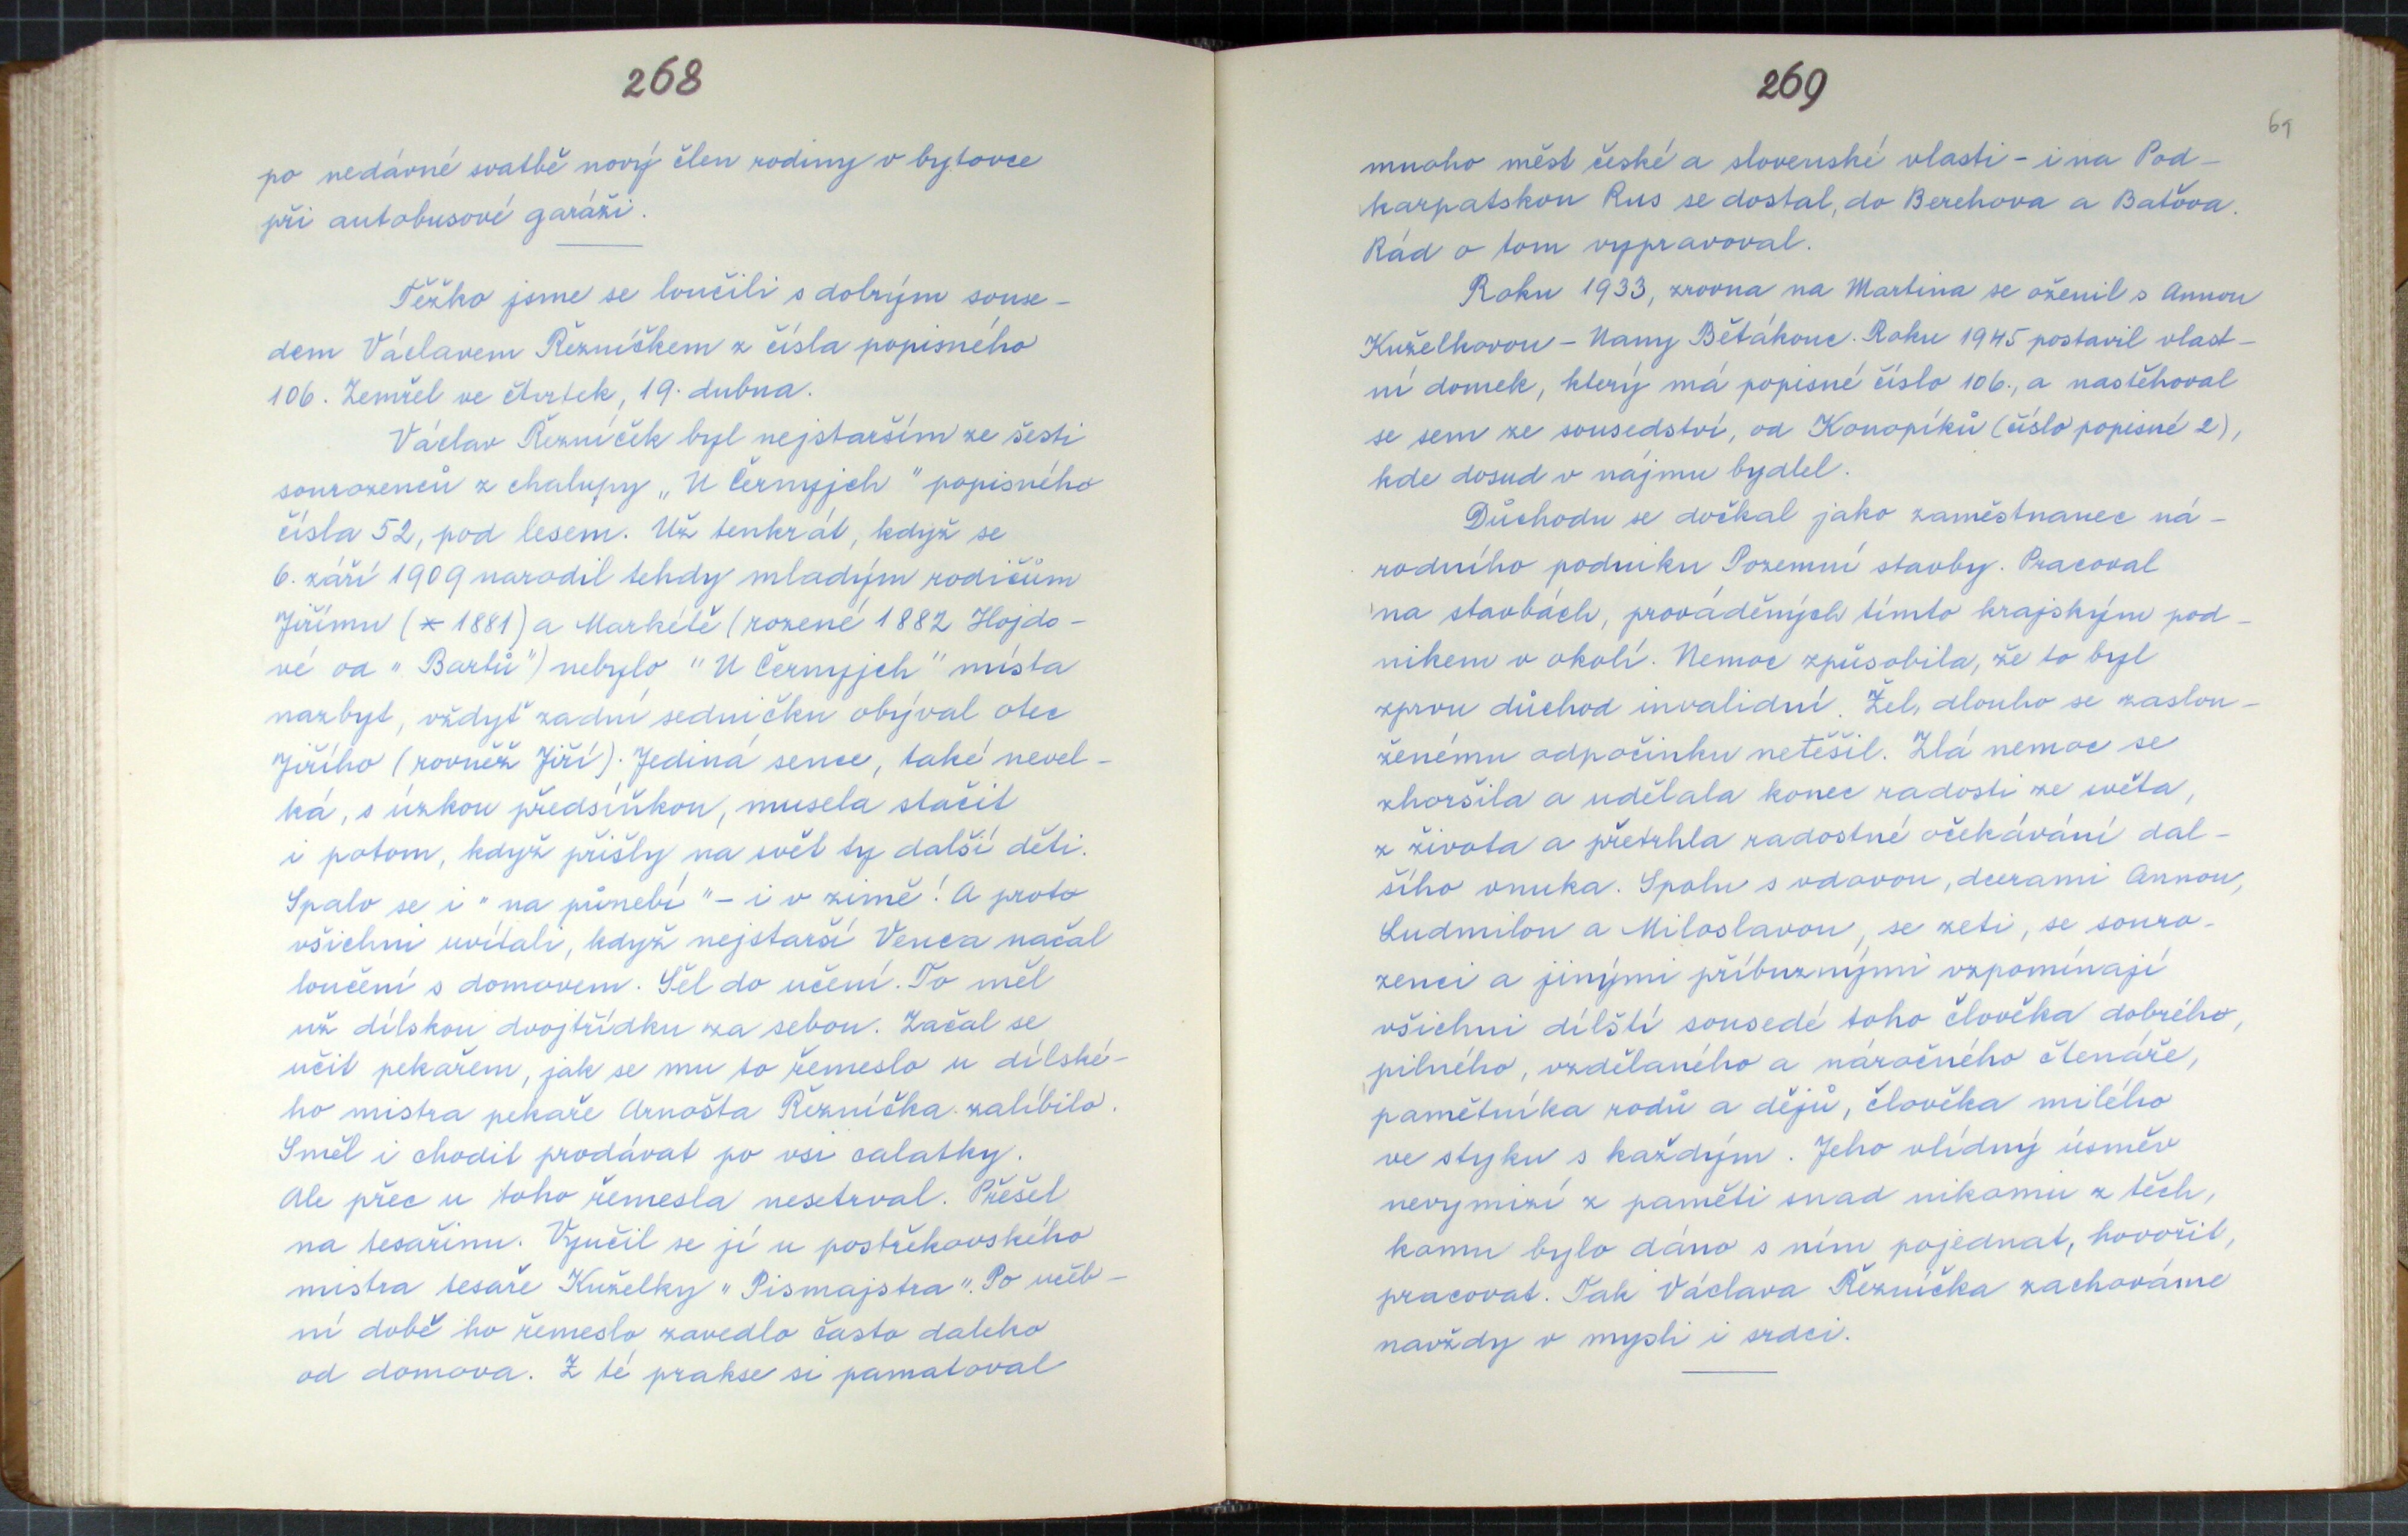 268
po nedávné svatbě nový člen rodiny v bytovce
při autobusové garáži.
Těžko jsme se loučili s dobrým souse-
dem Václavem Řezníčkem z čísla popisného
106. Zemřel ve čtvrtek, 19. dubna.
Václav Řezníček byl nejstarším ze šesti
sourozenců z chalupy „U Černyjch" popisného
čísla 52, pod lesem. Už tenkrát, když se
6. září 1909 narodil tehdy mladým rodičům
Jiřímu (* 1881) a Markétě (rozené 1882 Hojdo-
vé od "Bartů") nebylo "U Černyjch" místa
nazbyt, vždyť zadní sedničku obýval otec
Jiřího (rovněž Jiří). Jediná sence, také nevel-
ká, s úzkou předsíňkou, musela stačit
i potom, když přišly na svět ty další děti.
Spalo se i "na půnebí" - i v zimě! A proto
všichni uvítali, když nejstarší Venca načal
loučení s domovem. Šel do učení. To měl
už dílskou dvojtřídku za sebou. Začal se
učit pekařem, jak se mu to řemeslo u dílské-
ho mistra pekaře Arnošta Řezníčka zalíbilo.
Směl i chodit prodávat po vsi calatky.
Ale přec u toho řemesla nesetrval. Přešel
na tesařinu. Vyučil se jí u postřekovského
mistra tesaře Kuželky "Pismajstra". Po učeb-
ní době ho řemeslo zavedlo často daleko
od domova. Z té prakse si pamatoval
269
69
mnoho měst české a slovenské vlasti - i na Pod-
karpatskou Rus se dostal, do Berehova a Baťova.
Rád o tom vypravoval.
Roku 1933, zrovna na Martina se oženil s Annou
Kuželkovou - Nany Bětákouc. Roku 1945 postavil vlast-
ní domek, který má popisné číslo 106., a nastěhoval
se sem ze sousedství, od Konopíků (číslo popisné 2),
kde dosud v nájmu bydlel.
Důchodu se dočkal jako zaměstnanec ná-
rodního podniku Pozemní stavby. Pracoval
na stavbách, prováděných tímto krajským pod-
nikem v okolí. Nemoc způsobila, že to byl
zprvu důchod invalidní. Žel, dlouho se zaslou-
ženému odpočinku netěšil. Zlá nemoc se
zhoršila a udělala konec radosti ze světa,
z života a přetrhla radostné očekávání dal-
šího vnuka. Spolu s vdovou, dcerami Annou,
Ludmilou a Miloslavou, se zeti, se souro-
zenci a jinými příbuznými vzpomínají
všichni dílští sousedé toho člověka dobrého,
pilného, vzdělaného a náročného čtenáře,
pamětníka rodů a dějů, člověka milého
ve styku s každým. Jeho vlídný úsměv
nevymizí z paměti snad nikomu z těch,
komu bylo dáno s ním pojednat, hovořit,
pracovat. Tak Václava Řezníčka zachováme
navždy v mysli i srdci.